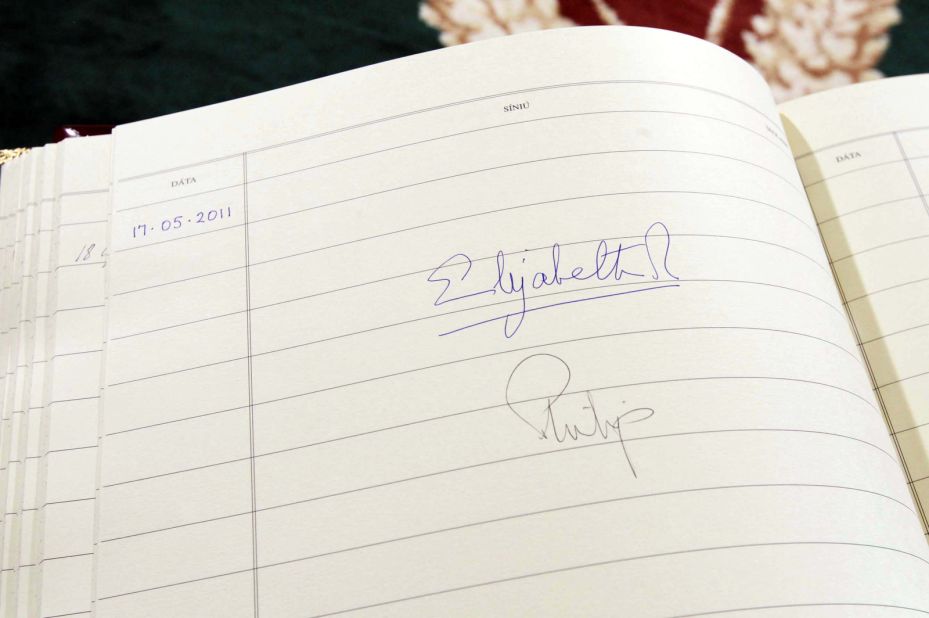 SÍNIÚ
DÁTA
DÁTA
17·05·2011
18
Elizabeth R
Philip